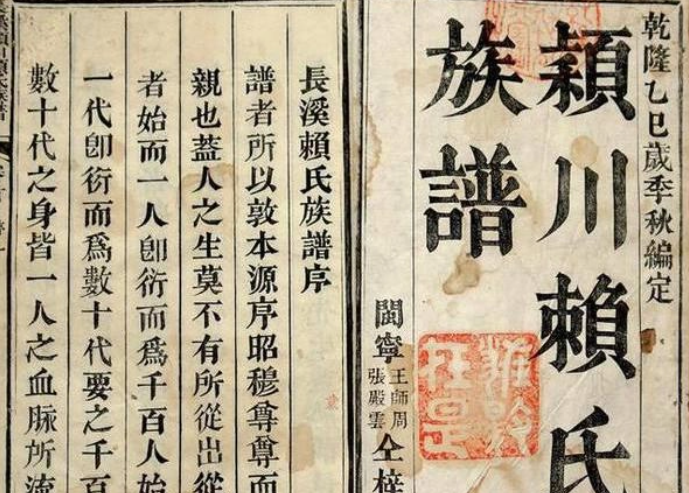 乾隆乙巳歲季秋編定
頴川賴氏
族譜
閩寧王師周張殿雲仝梓
長溪賴氏族譜序
譜者所以敦本源序昭穆尊尊而
親也蓋人之生莫不有所從出從
者始而一人卽衍而爲千百人始
一代卽衍而爲數十代要之千百
數十代之身皆一人之血脈所流